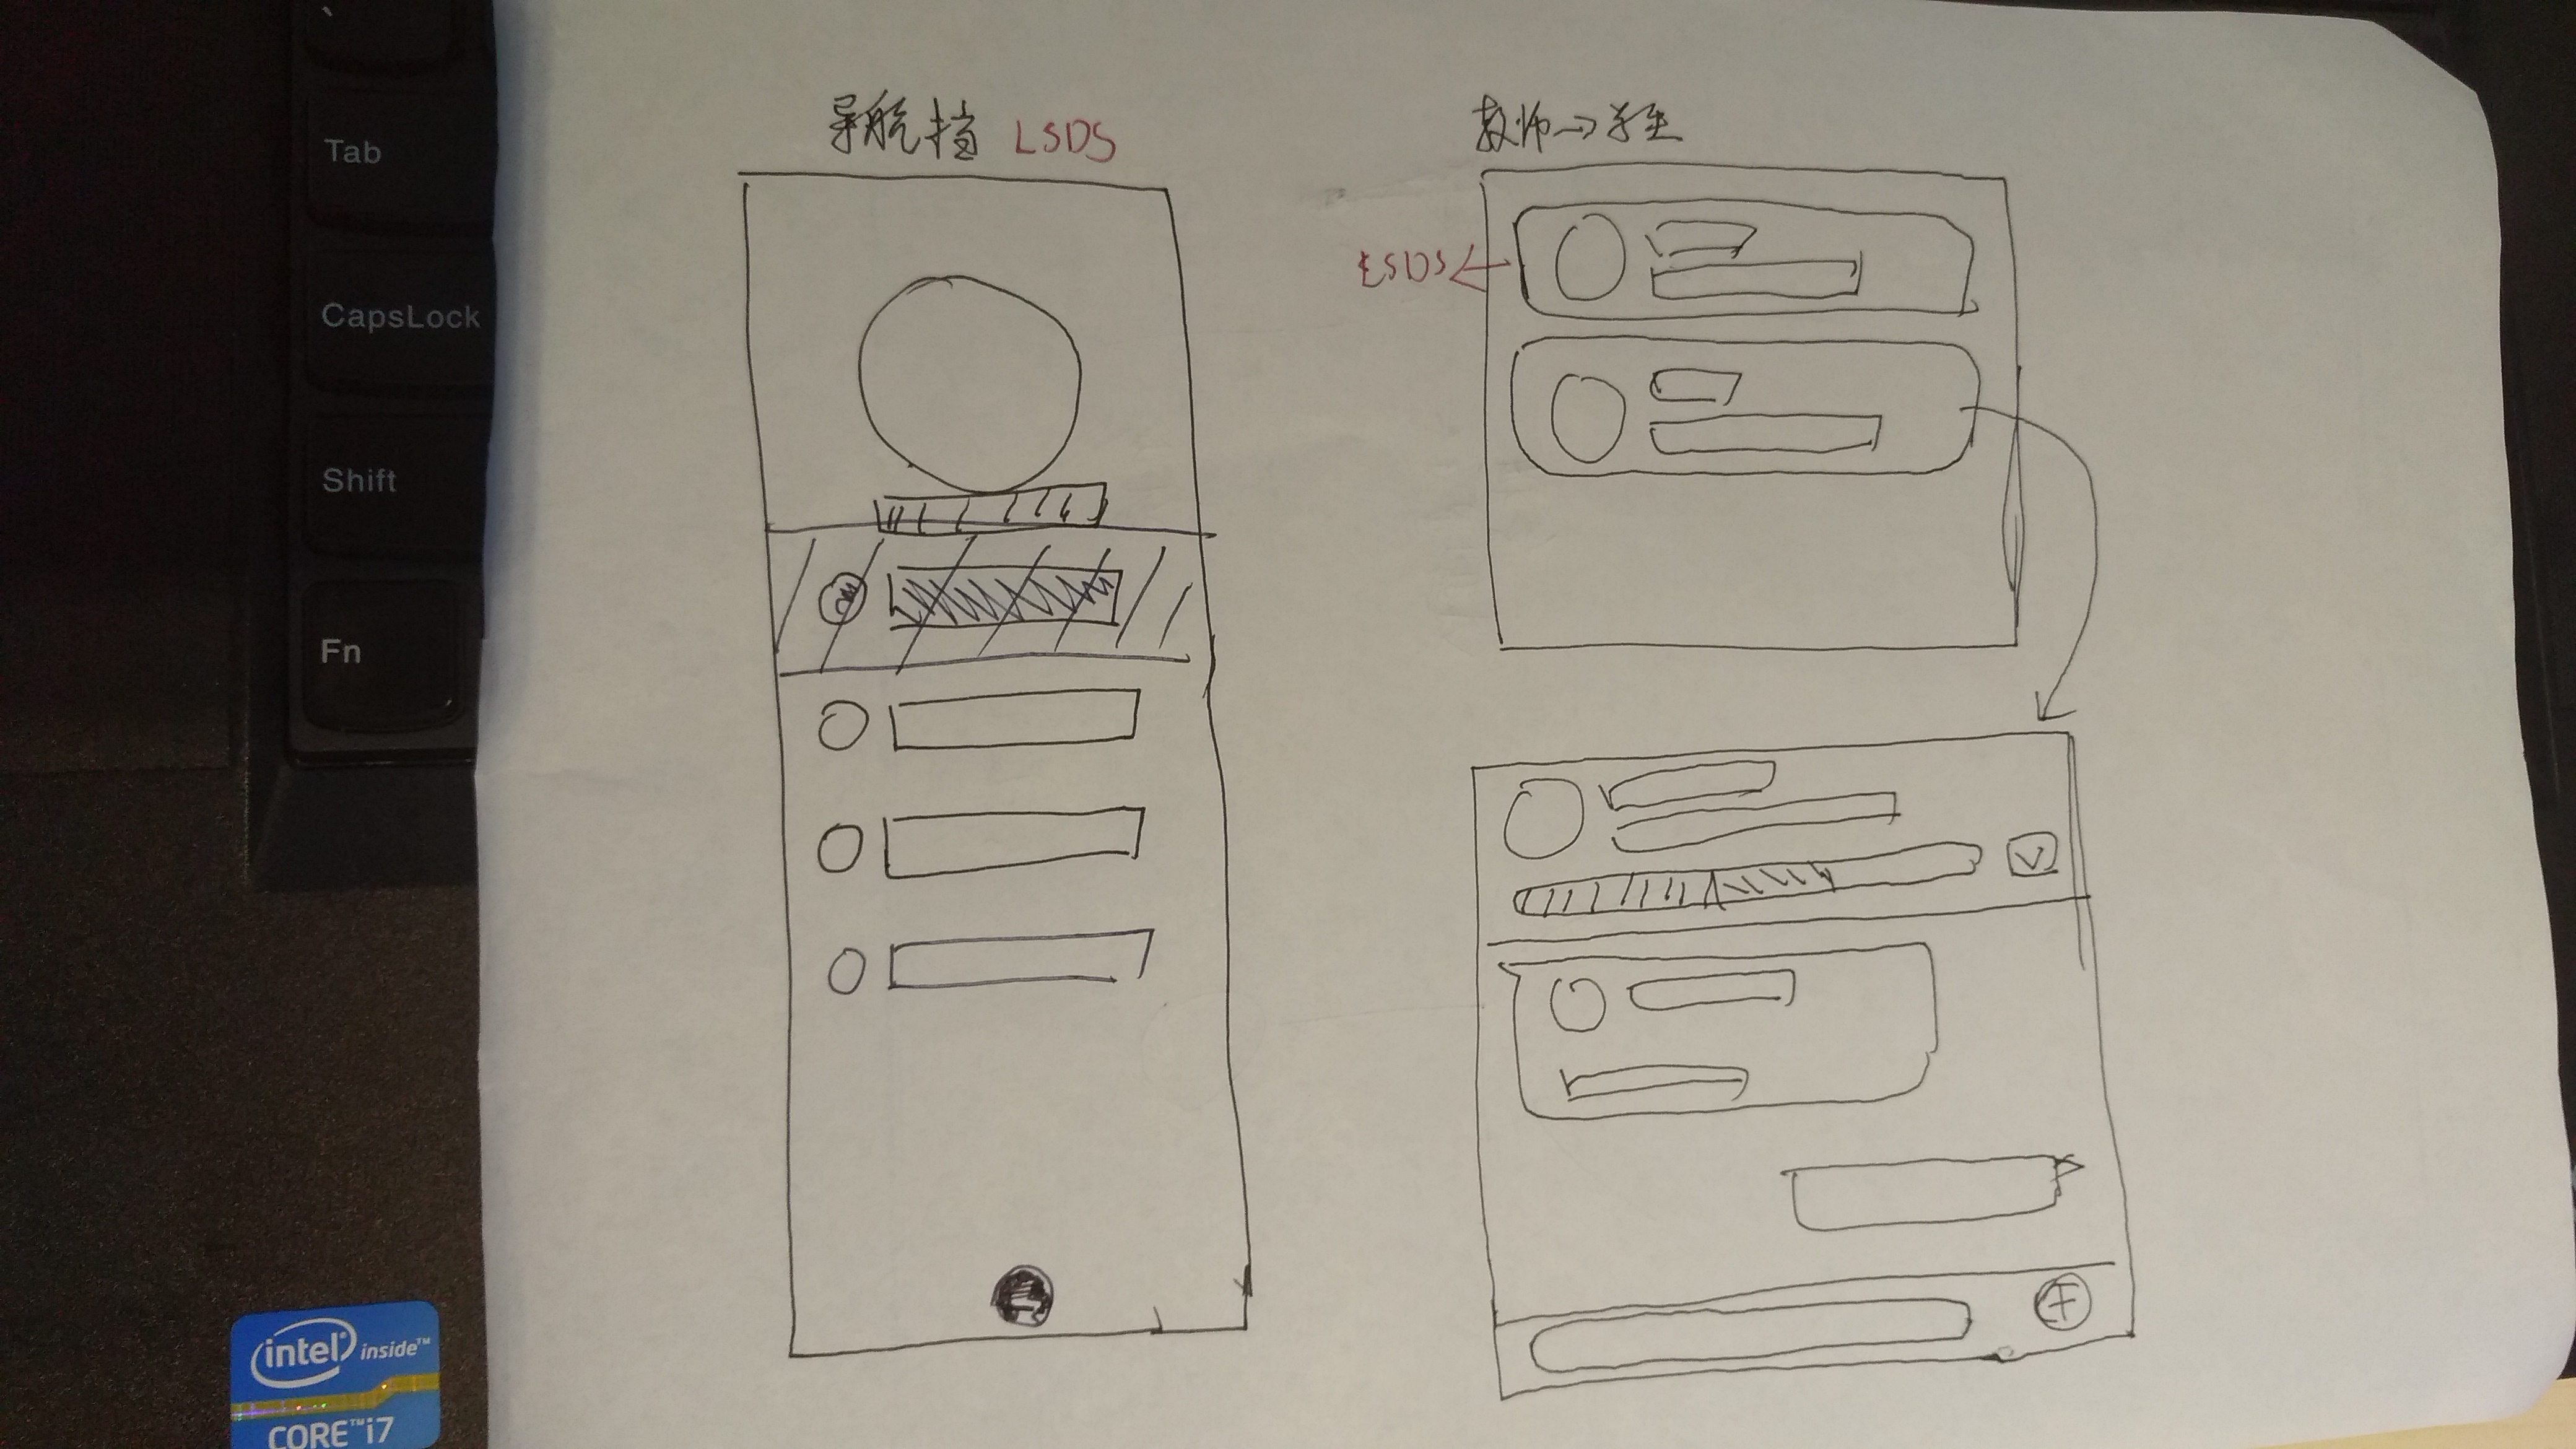 `
Tab
CapsLock
Shift
Fn
intel inside™
CORE™ i7
导航挡 LSDS
教师→学生
LSDS